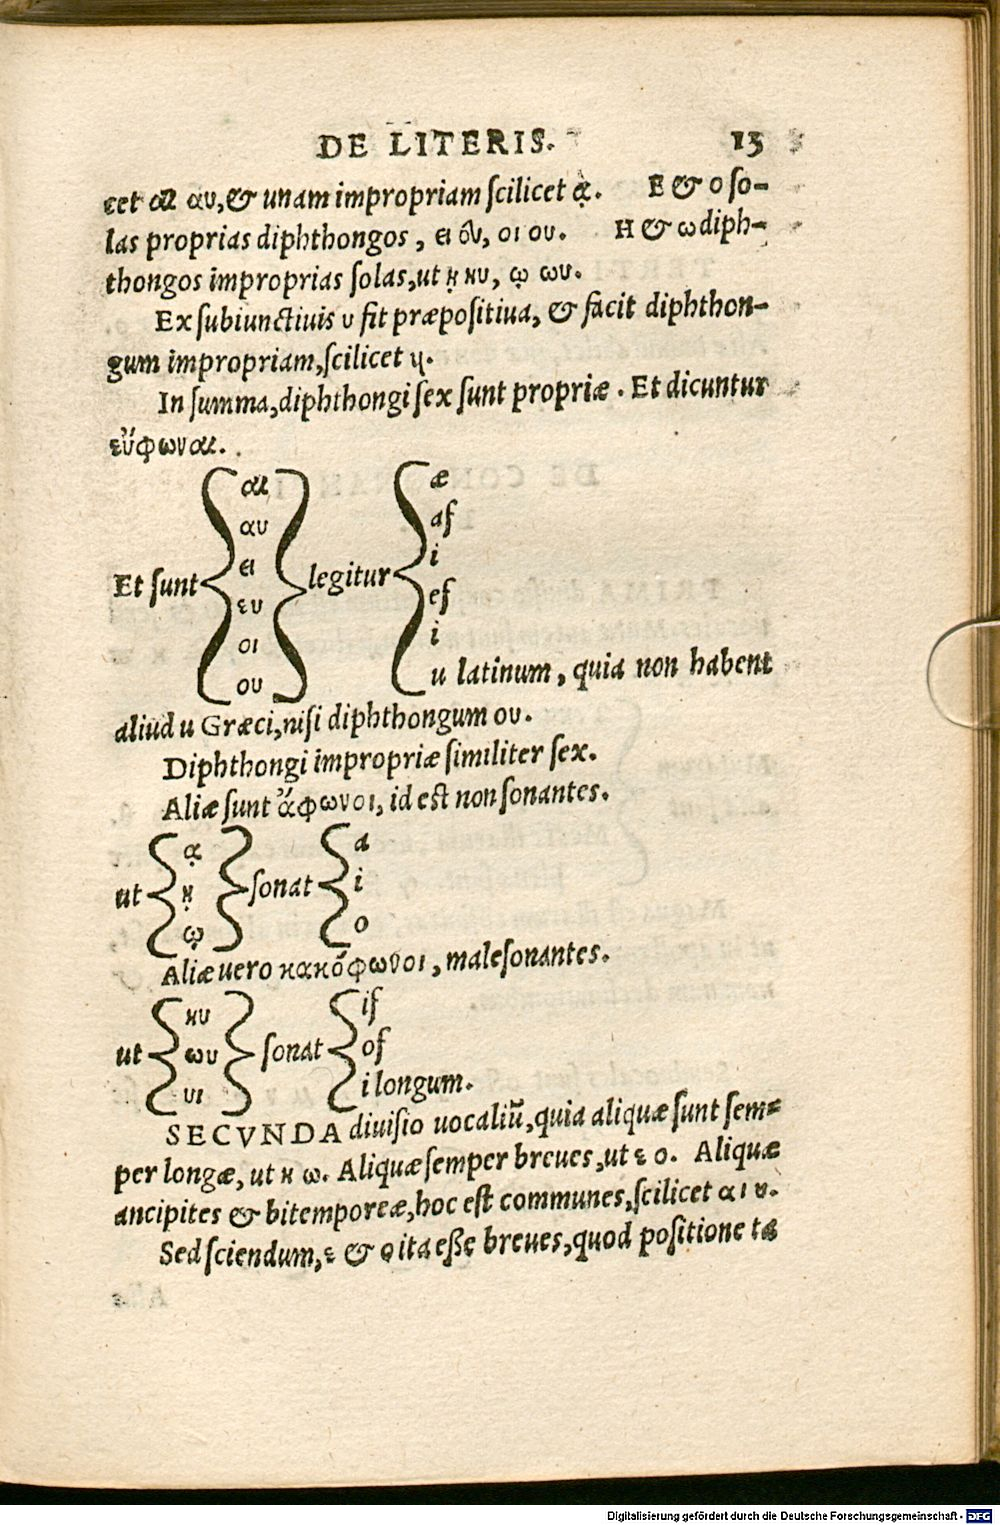 DE LITERIS. 13
cet αι αυ, & unam impropriam ſcilicet ᾳ. E & o ſo-
las proprias diphthongos, ει ευ, οι ου. H & ω diph-
thongos improprias ſolas, ut ῃ ηυ, ῳ ωυ.
Ex ſubiunctiuis υ fit præpoſitiua, & facit diphthon-
gum impropriam, ſcilicet υι.
In ſumma, diphthongi ſex ſunt propriæ. Et dicuntur
εὔφωναι.
αι æ
αυ aſ
ει i
Et ſunt legitur
ευ eſ
οι i
ου u latinum, quia non habent
aliud u Græci, niſi diphthongum ου.
Diphthongi impropriæ ſimiliter ſex.
Aliæ ſunt ἄφωνοι, id eſt non ſonantes.
ᾳ a
ut ῃ ſonat i
ῳ o
Aliæ uero κακόφωνοι, maleſonantes.
ηυ iſ
ut ωυ ſonat oſ
υι i longum.
SECVNDA diuiſio uocaliũ, quia aliquæ ſunt ſem-
per longæ, ut η ω. Aliquæ ſemper breues, ut ε ο. Aliquæ
ancipites & bitemporeæ, hoc eſt communes, ſcilicet α ι υ.
Sed ſciendum, ε & ο ita eſſe breues, quod poſitione tã
Digitalisierung gefördert durch die Deutsche Forschungsgemeinschaft - DFG